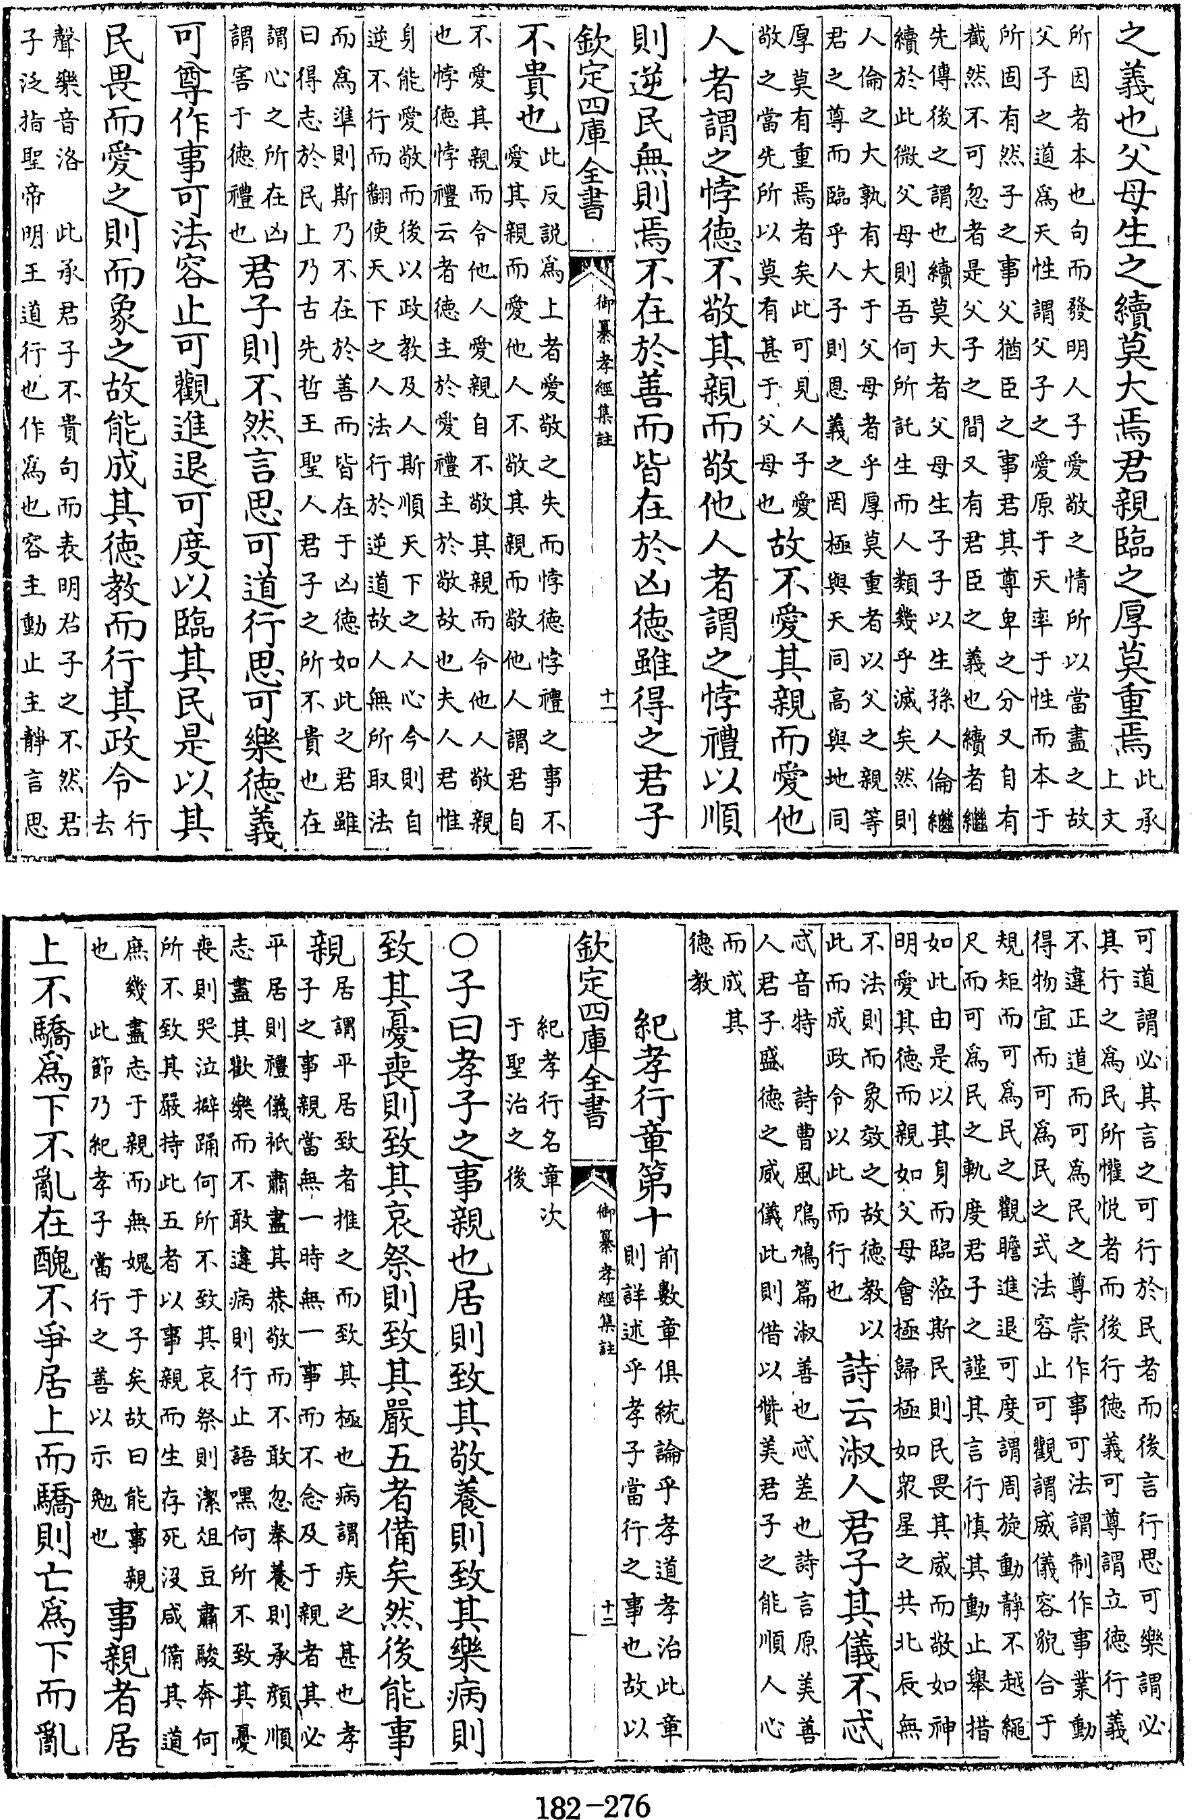 之義也父母生之續莫大焉君親臨之厚莫重焉此承
上文
所因者本也句而發明人子愛敬之情所以當盡之故
父子之道爲天性謂父子之愛原于天率于性而本于
所固有然子之事父猶臣之事君其尊卑之分又自有
截然不可忽者是父子之間又有君臣之義也續者繼
先傳後之謂也續莫大者父母生子子以生孫人倫繼
續於此微父母則吾何所託生而人類幾乎滅矣然則
人倫之大孰有大于父母者乎厚莫重者以父之親等
君之尊而臨乎人子則恩義之罔極與天同高與地同
厚莫有重焉者矣此可見人子愛
敬之當先所以莫有甚于父母也
故不愛其親而愛他
人者謂之悖德不敬其親而敬他人者謂之悖禮以順
則逆民無則焉不在於善而皆在於凶德雖得之君子
欽定四庫全書 御纂孝經集註 十一
不貴也
此反說爲上者愛敬之失而悖德悖禮之事不
愛其親而愛他人不敬其親而敬他人謂君自
不愛其親而令他人愛親自不敬其親而令他人敬親
也悖德悖禮云者德主於愛禮主於敬故也夫人君惟
身能愛敬而後以政教及人斯順天下之人心今則自
逆不行而翻使天下之人法行於逆道故人無所取法
而爲準則斯乃不在於善而皆在于凶德如此之君雖
曰得志於民上乃古先哲王聖人君子之所不貴也在
謂心之所在凶
謂害于德禮也
君子則不然言思可道行思可樂德義
可尊作事可法容止可觀進退可度以臨其民是以其
民畏而愛之則而象之故能成其德教而行其政令行
去
聲樂音洛 此承君子不貴句而表明君子之不然君
子泛指聖帝明王道行也作爲也容主動止主靜言思
可道謂必其言之可行於民者而後言行思可樂謂必
其行之爲民所懽悅者而後行德義可尊謂立德行義
不違正道而可爲民之尊崇作事可法謂制作事業動
得物宜而可爲民之式法容止可觀謂威儀容貌合于
規矩而可爲民之觀瞻進退可度謂周旋動靜不越繩
尺而可爲民之軌度君子之謹其言行慎其動止舉措
如此由是以其身而臨涖斯民則民畏其威而敬如神
明愛其德而親如父母會極歸極如衆星之共北辰無
不法則而象效之故德教以
此而成政令以此而行也
詩云淑人君子其儀不忒
忒音特 詩曹風鳲鳩篇淑善也忒差也詩言原美善
人君子盛德之威儀此則借以贊美君子之能順人心
而成其
德教
紀孝行章第十
前數章俱統論乎孝道孝治此章
則詳述乎孝子當行之事也故以
欽定四庫全書 御纂孝經集註 十二
紀孝行名章次
于聖治之後
○子曰孝子之事親也居則致其敬養則致其樂病則
致其憂喪則致其哀祭則致其嚴五者備矣然後能事
親
居謂平居致者推之而致其極也病謂疾之甚也孝
子之事親當無一時無一事而不念及于親者其必
平居則禮儀祇肅盡其恭敬而不敢忽奉養則承顏順
志盡其歡樂而不敢違病則行止語嘿何所不致其憂
喪則哭泣擗踊何所不致其哀祭則潔俎豆肅駿奔何
所不致其嚴持此五者以事親而生存死沒咸備其道
庶幾盡志于親而無媿于子矣故曰能事親
也 此節乃紀孝子當行之善以示勉也
事親者居
上不驕爲下不亂在醜不爭居上而驕則亡爲下而亂
182-276